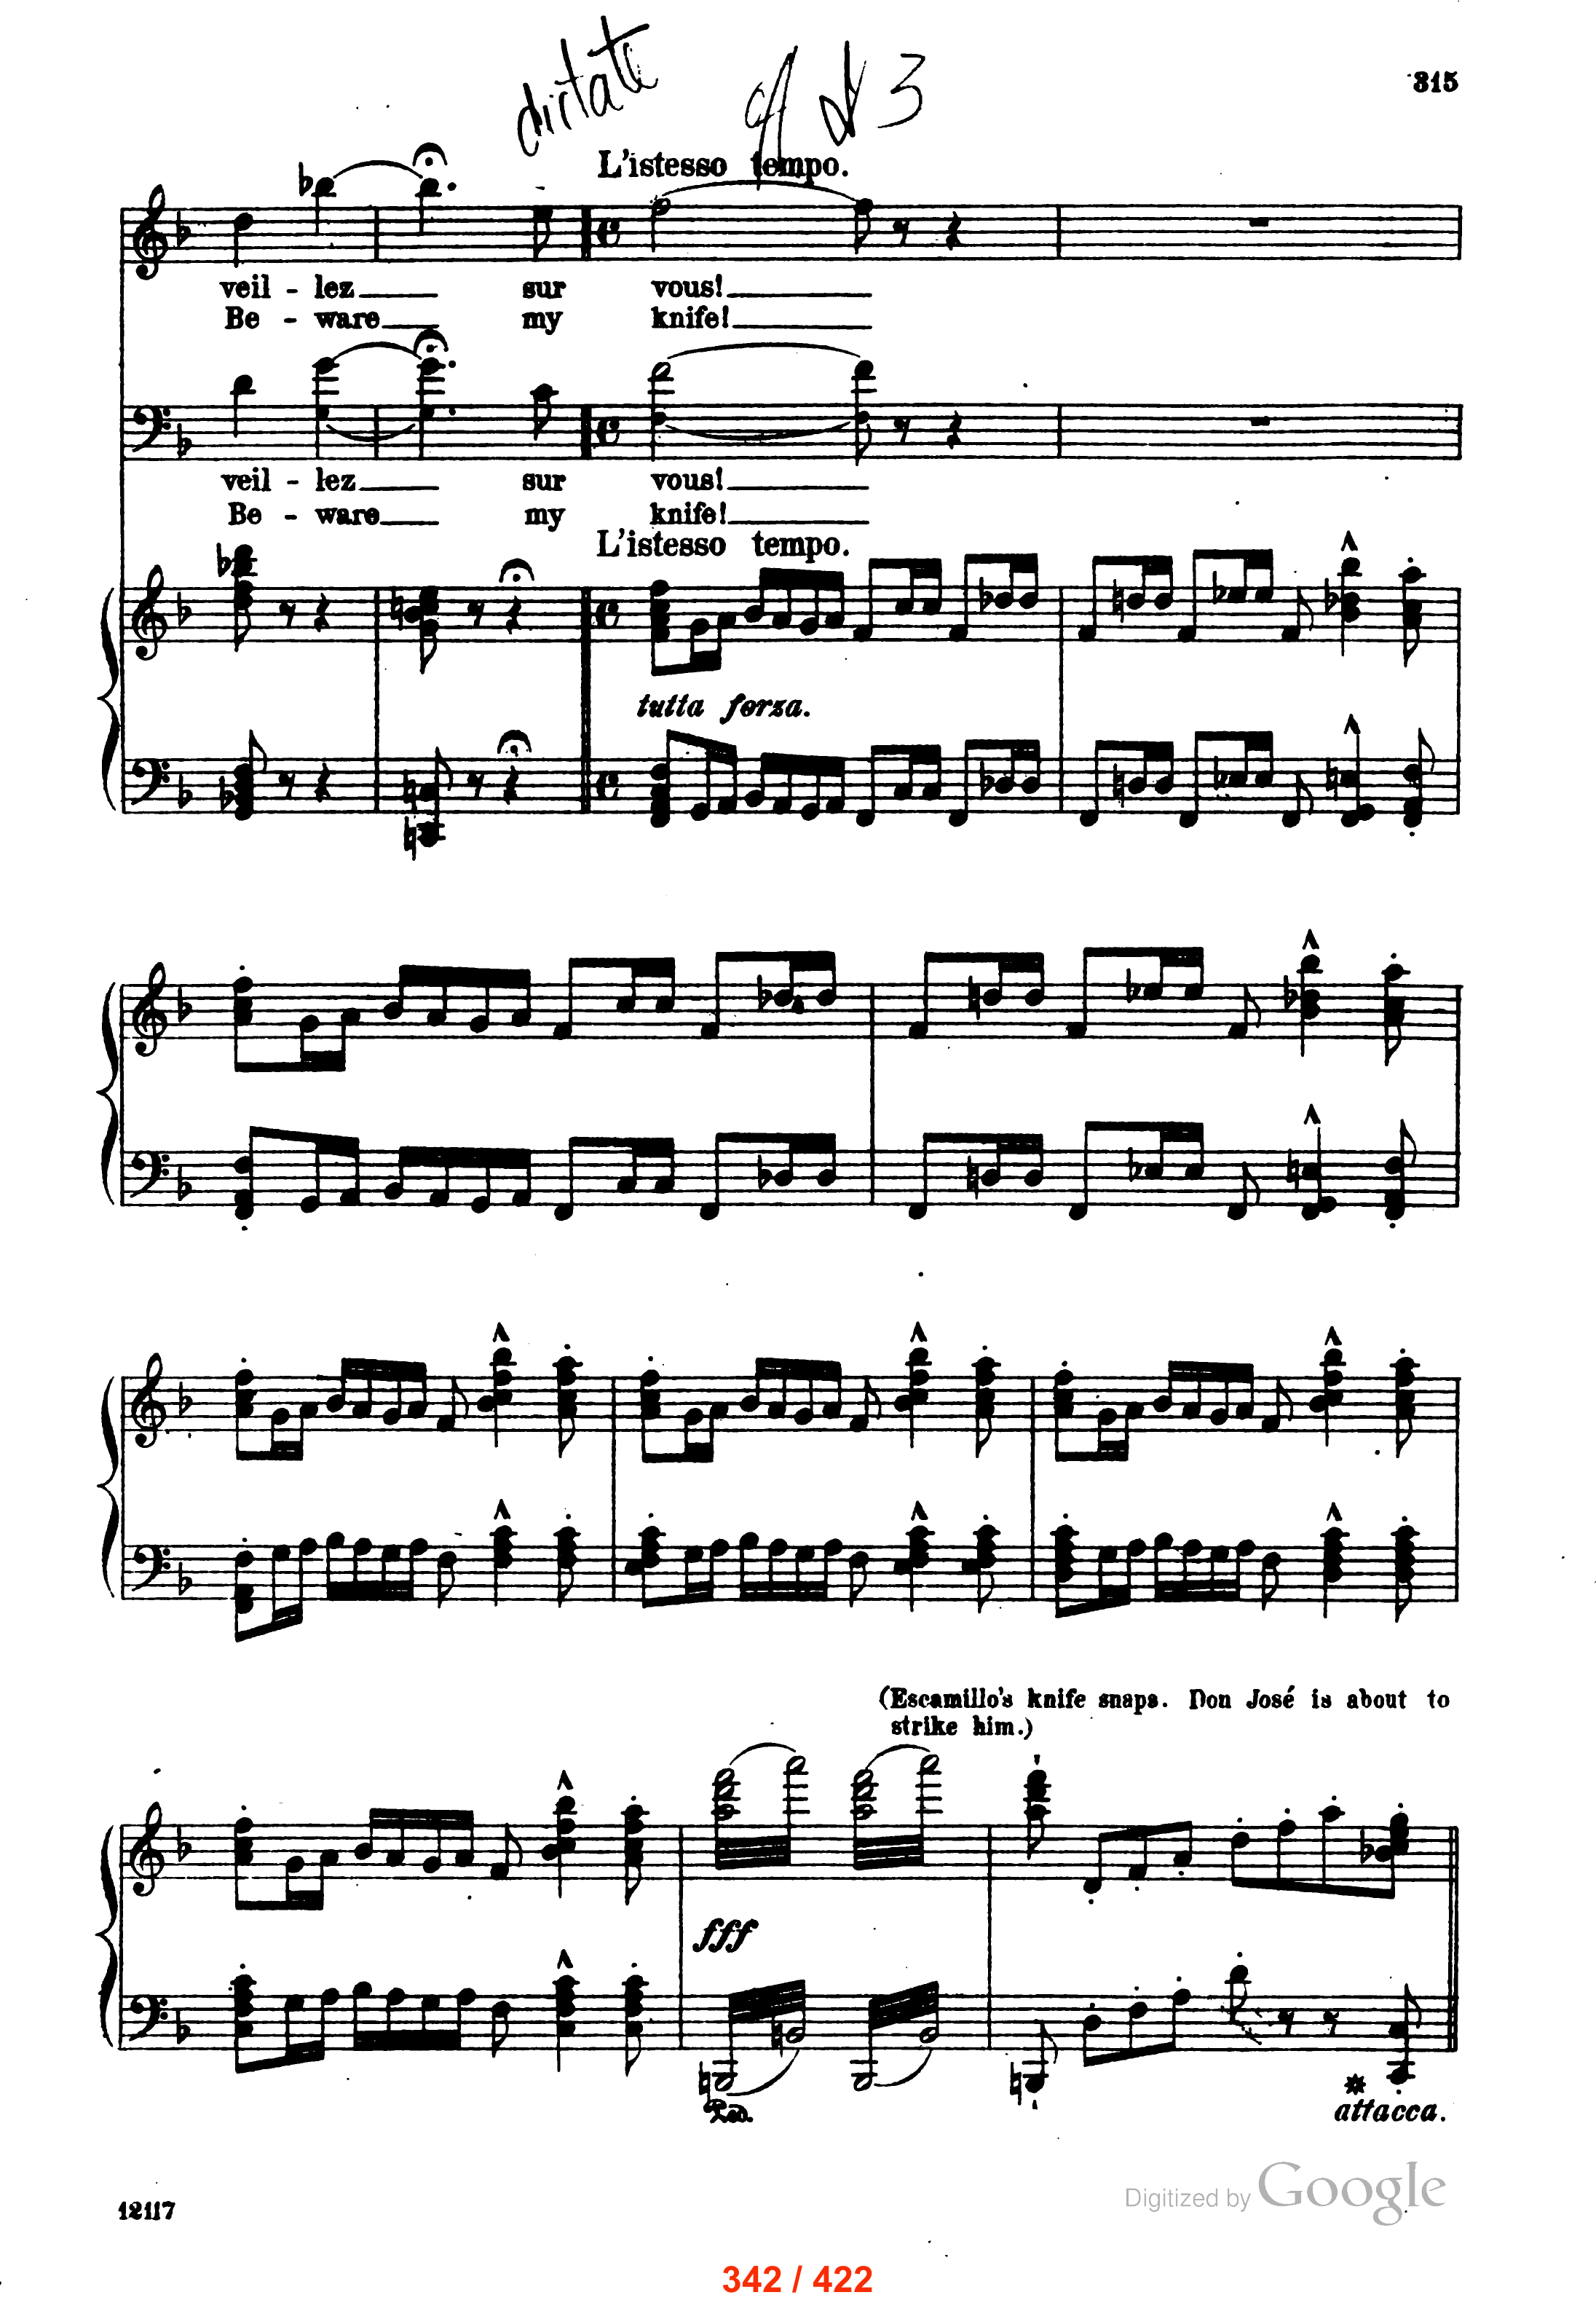 315
L'istesso tempo.
veil - lez sur vous!
Be - ware my knife!
veil - lez sur vous!
Be - ware my knife!
L'istesso tempo.
tutta forza.
(Escamillo's knife snaps. Don José is about to
strike him.)
fff
Ped.
attacca.
12117
Digitized by Google
342 / 422